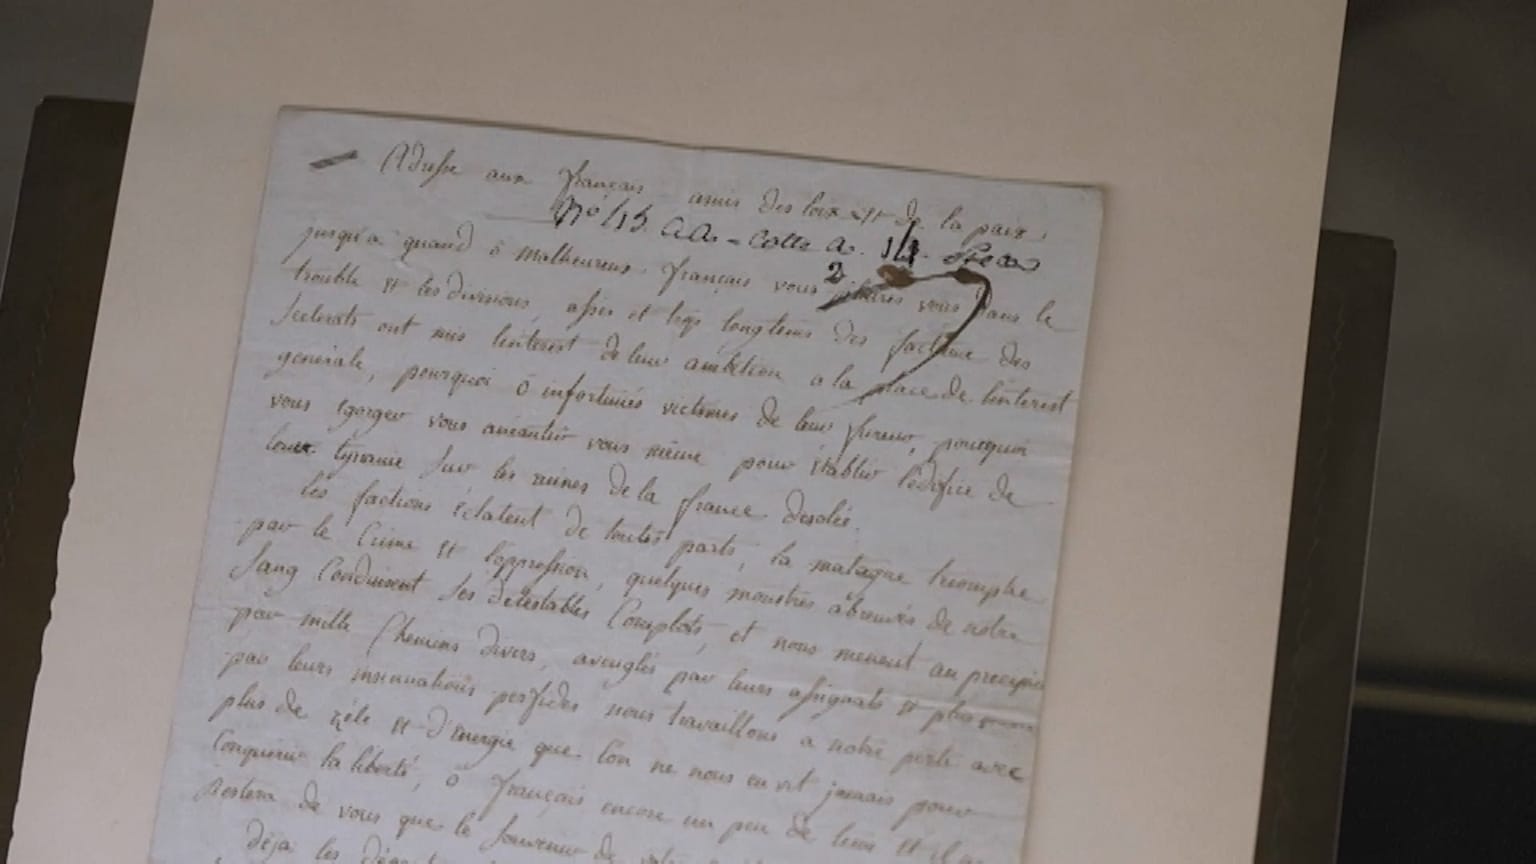 Adresse aux français amis des loix et de la paix,
No 15. aa - Cotte a. 14. Pieces
2
jusqu'a quand ô malheureux français vous plairés vous dans le
trouble et les divisions, assés et trop longtems des factieux des
scelerats ont mis linterest de leur ambition a la place de linterest
generale, pourquoi ô infortunés victimes de leur fureur, pourquoi
vous egorger vous aneantir vous même pour établir lédifice de
leur tyranie sur les ruines de la france desolée.
les factions éclatent de toutes parts, la motagne triomphe
par le Crime et loppression, quelques monstres abreuvés de notre
Sang Conduisent ses détestables Complots, et nous menent au precipice
par mille Chemins divers, aveuglés par leurs assignats et plus
par leurs insinuations perfides nous travaillons a notre perte avec
plus de zéle et d'énergie que lon ne nous en vit jamais pour
Conquerir la liberté, ô français encore un peu de tems et il ne
Restera de vous que le Souvenir de votre
déja les